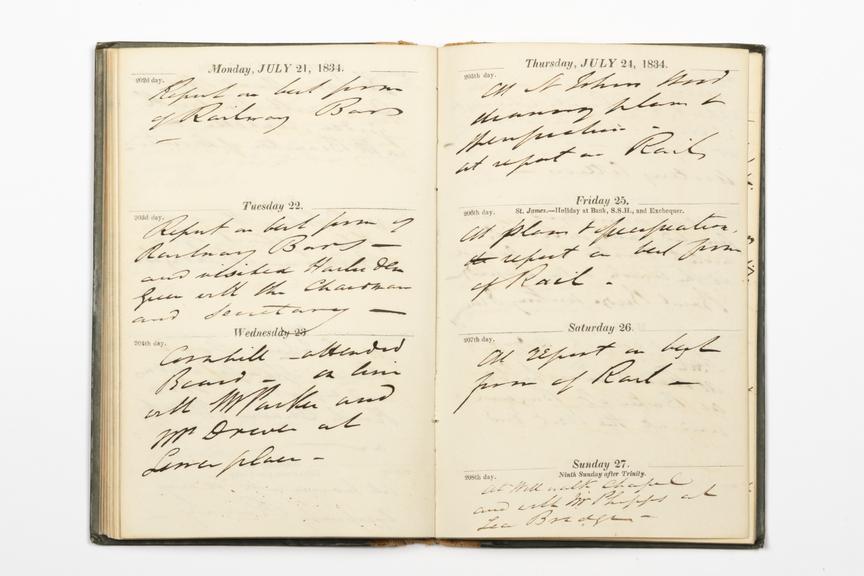 Monday, JULY 21, 1834.
202d day.
Report on best form
of Railway Bars
Tuesday 22.
203d day.
Report on best form of
Railway Bars —
and visited Harlesden
Green with the Chairman
and Secretary —
Wednesday 23
204th day.
Cornhill — attended
Board — on line
with Mr Parker and
Mr Drewe at
place —
Thursday, JULY 24, 1834.
205th day.
At St Johns Wood
drawing plans &
specification
at report on Rails
Friday 25.
206th day.
St. James.—Holiday at Bank, S.S.H., and Exchequer.
At plans & specification,
report on best form
of Rail -
Saturday 26.
207th day.
At report on best
form of Rail —
Sunday 27.
208th day.
Ninth Sunday after Trinity.
At Chapel
and with Mr Phipps at
Lea Bridge —